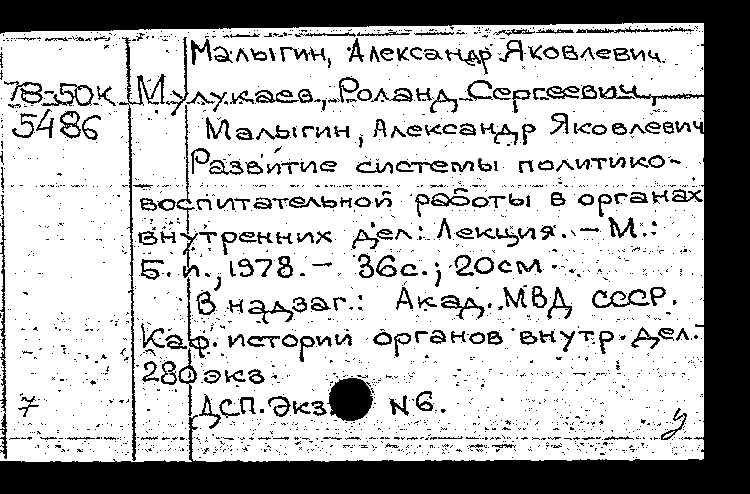 Малыгин, Александр Яковлевич
78-50к Мулукаев, Роланд Сергеевич,
5486 Малыгин, Александр Яковлевич
Развитие системы политико-
воспитательной работы в органах
внутренних дел: Лекция. – М.:
Б. и., 1978. – 36с.; 20см.
В надзаг.: Акад. МВД СССР.
Каф. истории органов внутр. дел.
280 экз.
7 ДСП. Экз. N 6.
у